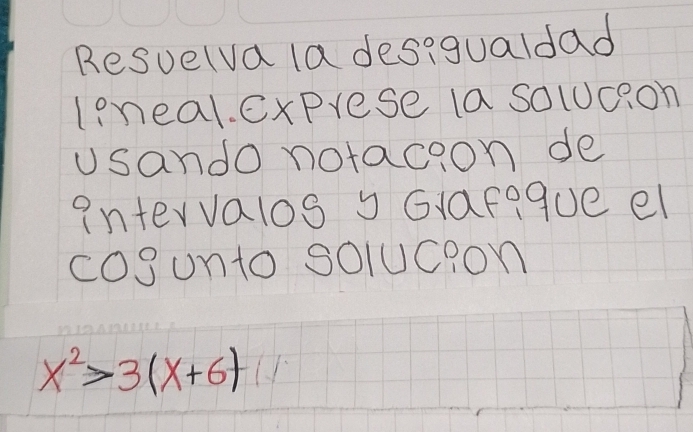 Resuelva la desigualdad
lineal. Exprese la solucion
usando notacion de
intervalos y Grafique el
cogunto solucion
x²>3(x+6)